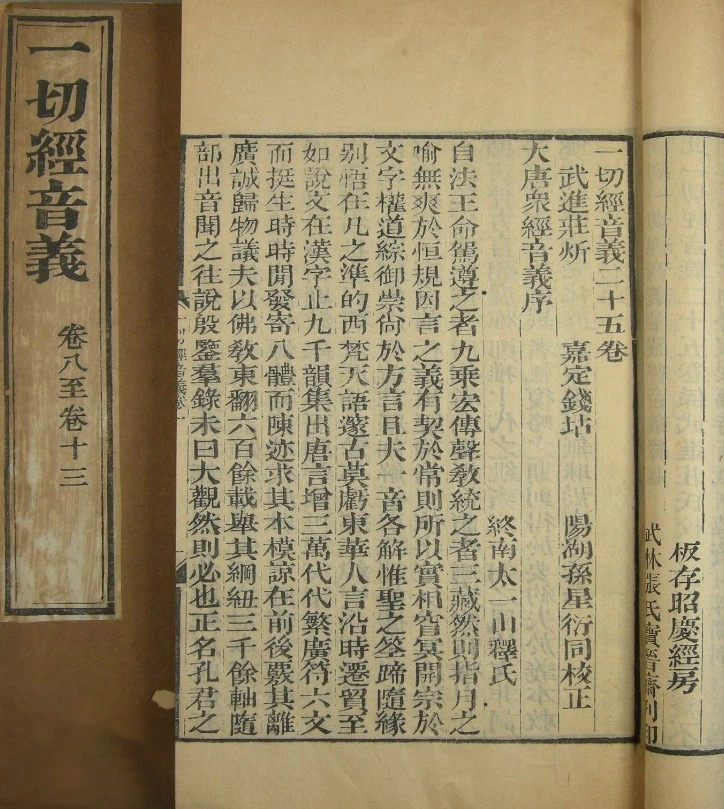 一切經音義
卷八至卷十三
板存昭慶經房
武林張氏寶晉齋刊印
一切經音義二十五卷
武進莊炘 嘉定錢坫 陽湖孫星衍同校正
大唐眾經音義序
終南太一山釋氏
自法王命駕遵之者九乘宏傳聲教統之者三藏然則指月之
喻無爽於恒規因言之義有契於常則所以實相窅冥開宗於
文字權道綜御崇尙於方言且夫一音各解惟聖之筌蹄隨緣
別悟在凡之準的西梵天語邃古莫虧東華人言沿時遷貿至
如說文在漢字止九千韻集出唐言增三萬代代繁廣符六文
而挺生時時閒發寄八體而陳迹求其本模諒在前後覈其離
廣誠歸物議夫以佛教東翻六百餘載舉其綱紐三千餘軸隨
部出音聞之往說殷鑒羣錄未曰大觀然則必也正名孔君之